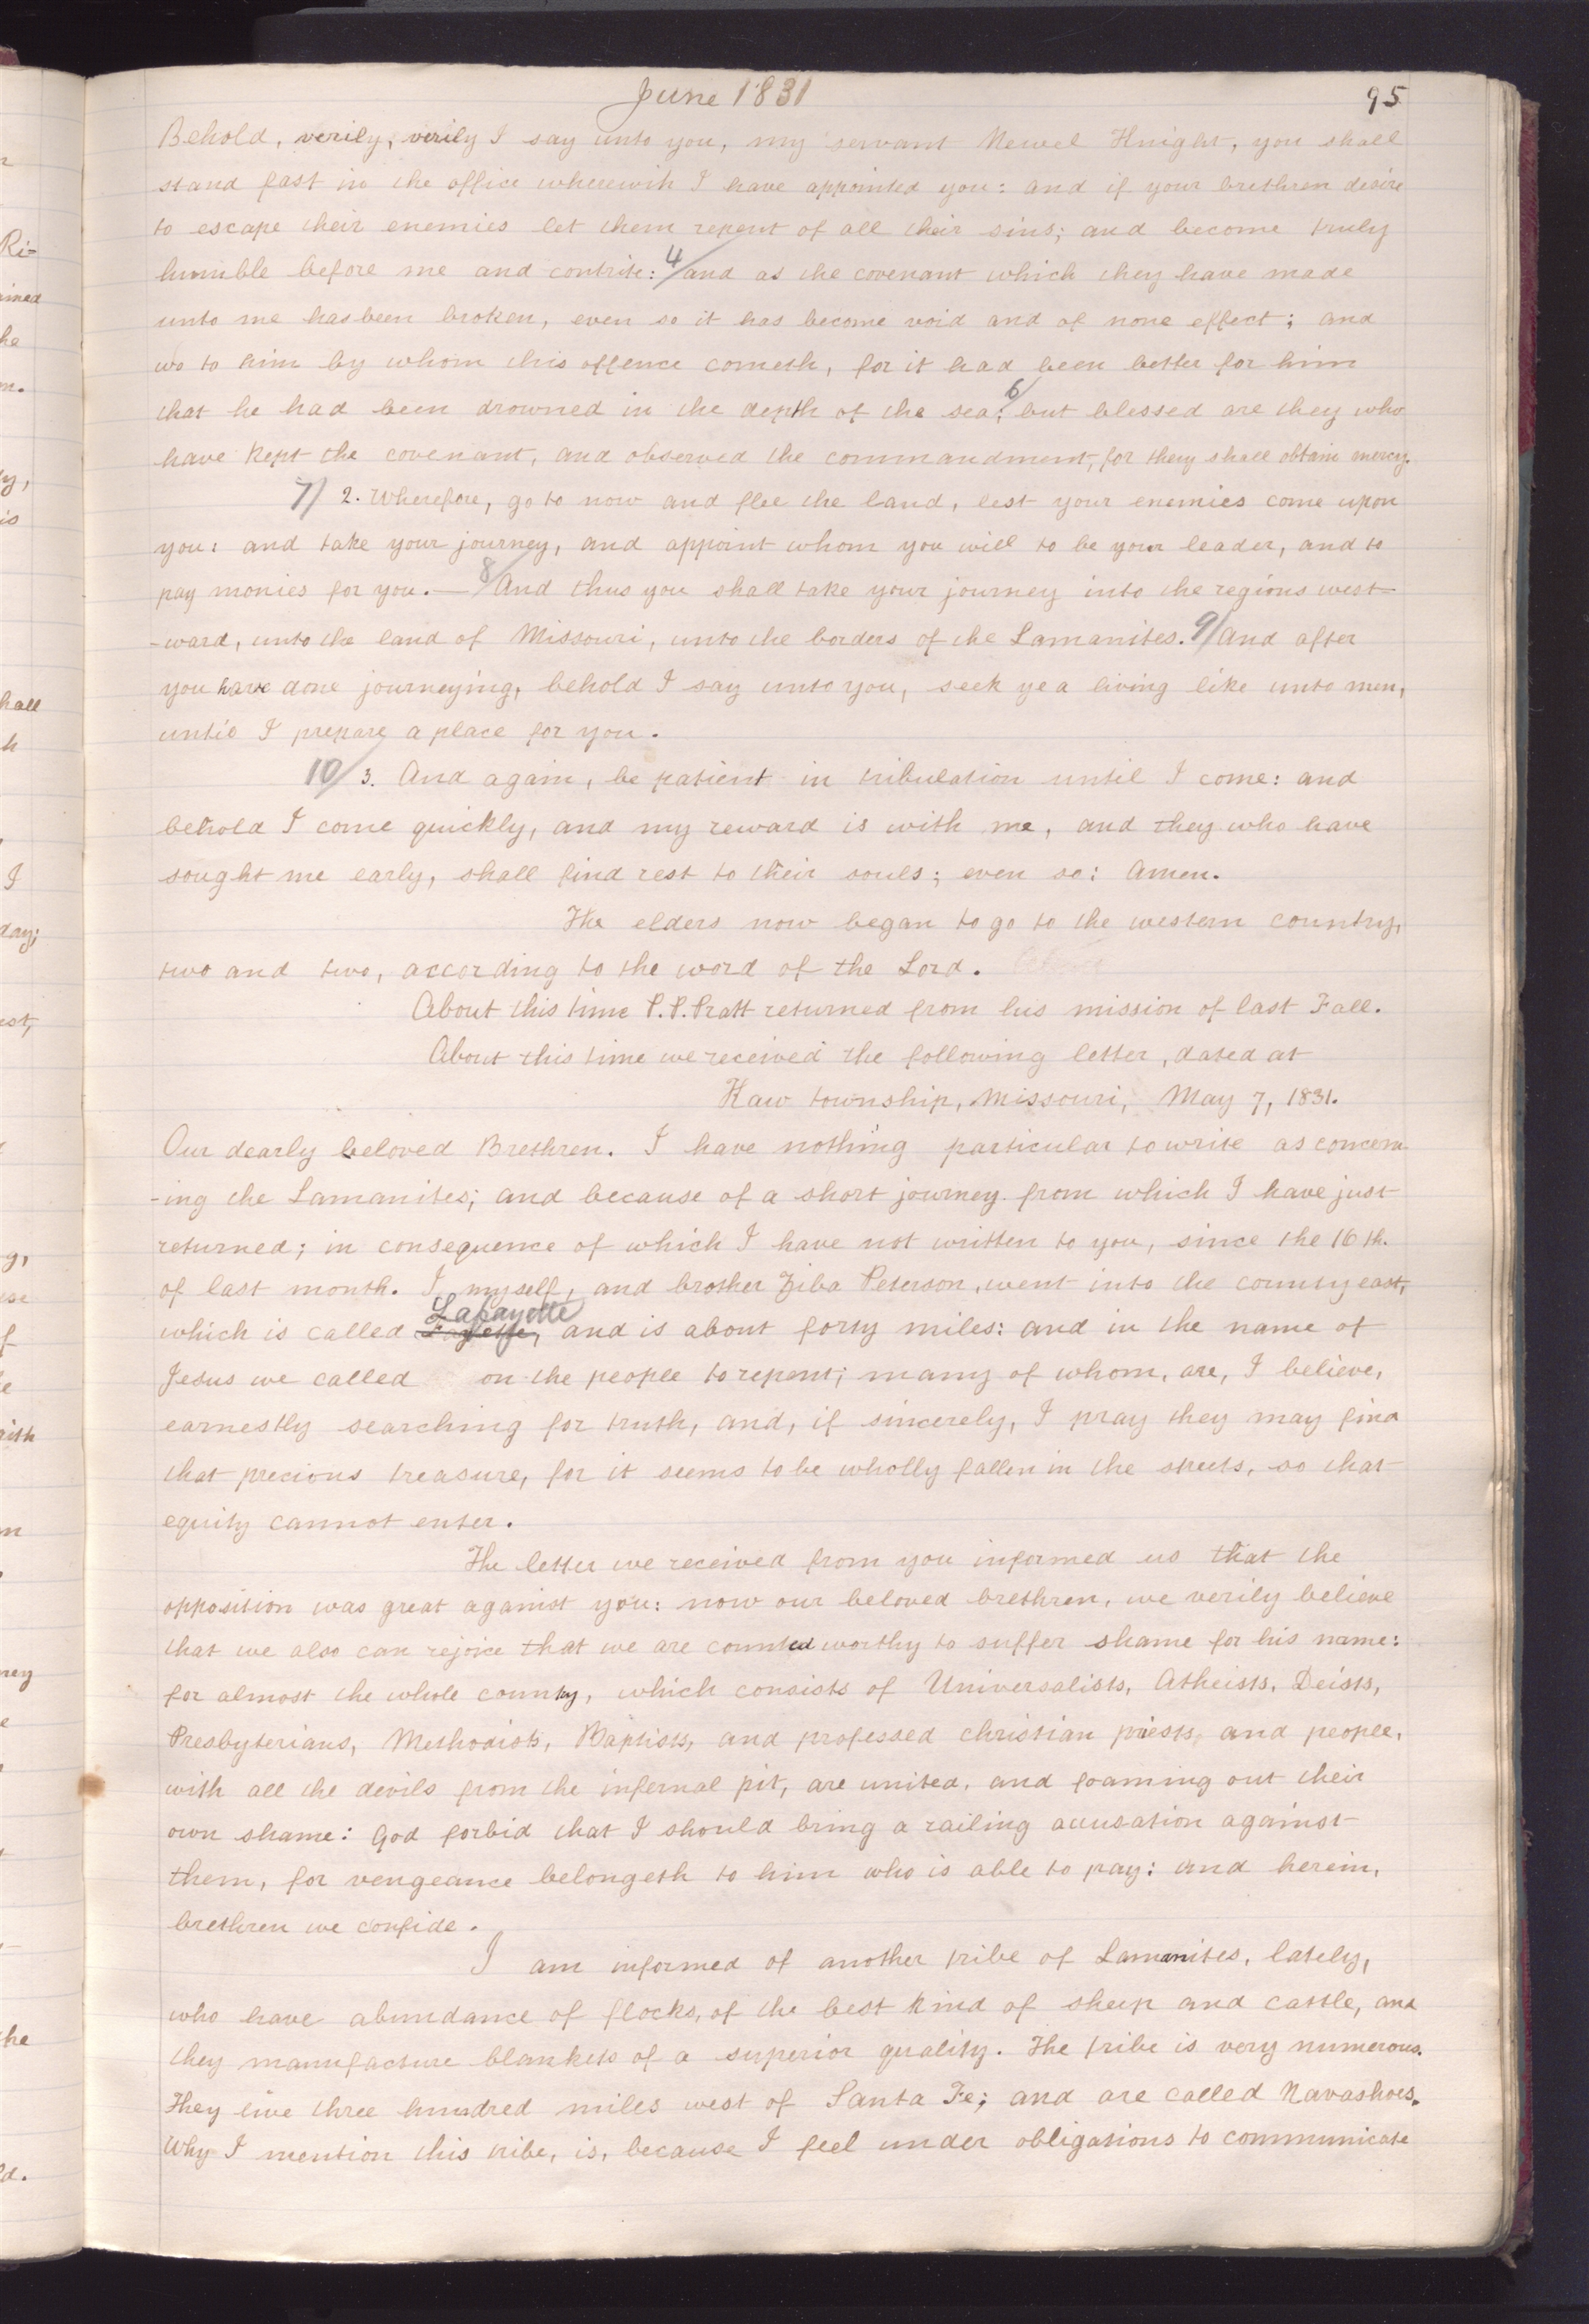 June 1831
95
Behold, verily, verily I say unto you, my servant Newel Knight, you shall
stand fast in the office wherewith I have appointed you: and if your brethren desire
to escape their enemies let them repent of all their sins; and become truly
humble before me and contrite: 4/ and as the covenant which they have made
unto me has been broken, even so it has become void and of none effect; and
wo to him by whom this offence cometh, for it had been better for him
that he had been drowned in the depth of the sea; 6/ but blessed are they who
have kept the covenant, and observed the commandment, for they shall obtain mercy.
7/ 2. Wherefore, go to now and flee the land, lest your enemies come upon
you: and take your journey, and appoint whom you will to be your leader, and to
pay monies for you.— 8/ And thus you shall take your journey into the regions west-
-ward, unto the land of Missouri, unto the borders of the Lamanites. 9/ And after
you have done journeying, behold I say unto you, seek ye a living like unto men,
until I prepare a place for you.
10/ 3. And again, be patient in tribulation until I come: and
behold I come quickly, and my reward is with me, and they who have
sought me early, shall find rest to their souls; even so: Amen.
The elders now began to go to the western country,
two and two, according to the word of the Lord.
About this time P. P. Pratt returned from his mission of last Fall.
About this time we received the following letter, dated at
Kaw township, Missouri, May 7, 1831.
Our dearly beloved Brethren. I have nothing particular to write as concern-
-ing the Lamanites; and because of a short journey from which I have just
returned; in consequence of which I have not written to you, since the 16th.
of last month. I, myself, and brother Ziba Peterson, went into the county east,
which is called Fayette, Lafayette and is about forty miles: and in the name of
Jesus we called on the people to repent; many of whom, are, I believe,
earnestly searching for truth, and, if sincerely, I pray they may find
that precious treasure, for it seems to be wholly fallen in the streets, so that
equity cannot enter.
The letter we received from you informed us that the
opposition was great against you: now our beloved brethren, we verily believe
that we also can rejoice that we are counted worthy to suffer shame for his name:
for almost the whole country, which consists of Universalists, Atheists, Deists,
Presbyterians, Methodists, Baptists, and professed christian priests, and people,
with all the devils from the infernal pit, are united, and foaming out their
own shame: God forbid that I should bring a railing accusation against
them, for vengeance belongeth to him who is able to pay: and herein,
brethren we confide.
I am informed of another tribe of Lamanites, lately,
who have abundance of flocks, of the best kind of sheep and cattle, and
they manufacture blankets of a superior quality. The tribe is very numerous.
They live three hundred miles west of Santa Fe; and are called Navashoes.
Why I mention this tribe, is, because I feel under obligations to communicate